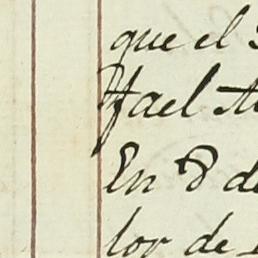 que el
fael
En 8 de
lor de